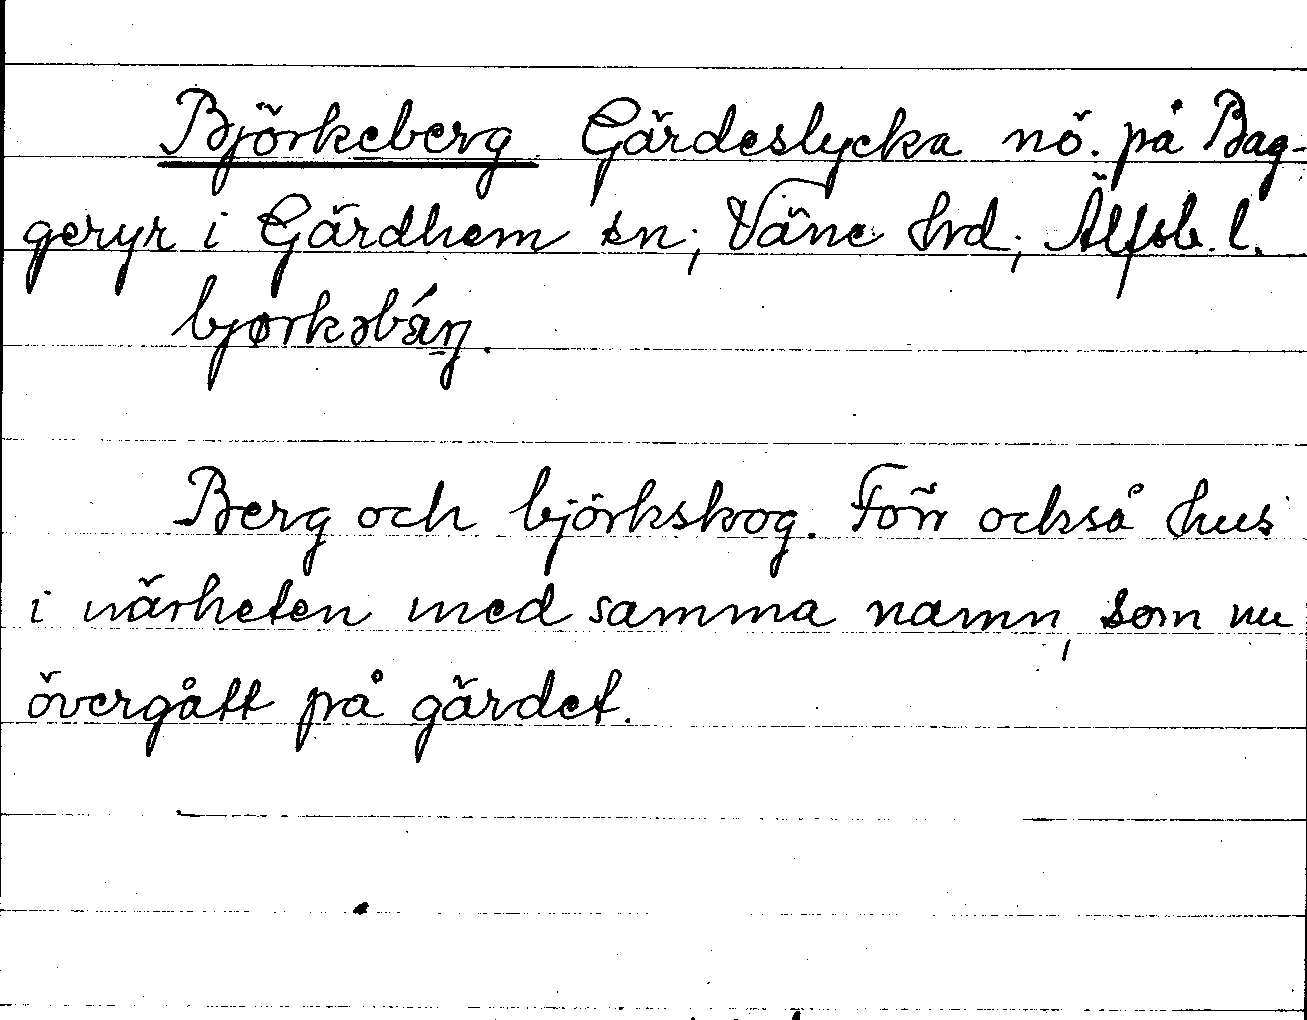 Björkeberg Gärdeslycka nö. på Bag-
geryr i Gärdhem sn; Väne hd; Älfsb. l.
bjørkəbáŋ.
Berg och björkskog. Förr också hus
i närheten med samma namn, som nu
övergått på gärdet.